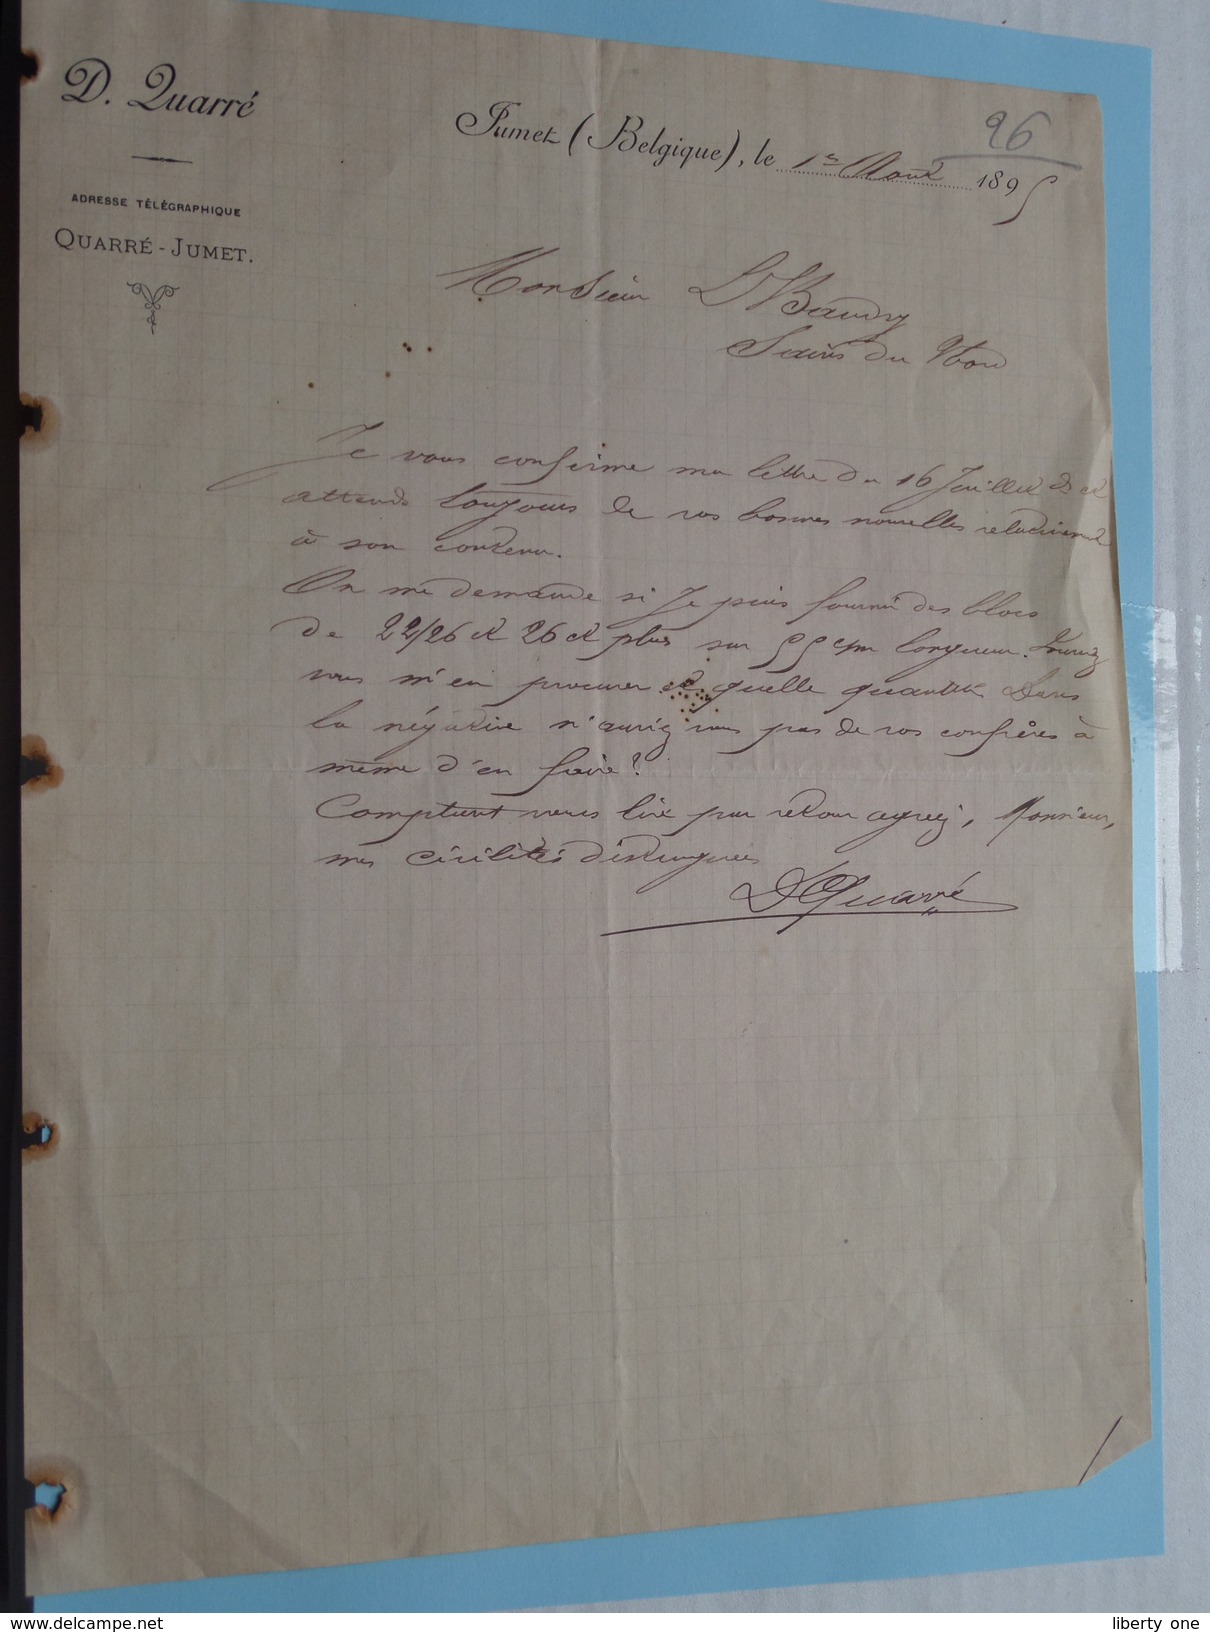 D. Quarré
ADRESSE TÉLÉGRAPHIQUE
QUARRÉ - JUMET.
96
Jumet (Belgique), le 1er Aout 1895
Monsieur L Baudry
Sains du Nord
Je vous confirme ma lettre du 16 Juillet et
attends toujours de vos bonnes nouvelles relativement
à son contenu.
On me demande si Je puis fournir des blocs
de 22/26 et 26 et plus sur 55 c/m longueur. Pourriez
vous m'en procurer et quelle quantité Dans
la négative n'auriez vous pas de vos confrères à
même d'en faire?
Comptant vous lire par retour agréez, Monsieur,
mes civilités distinguées
D Quarré
delcampe.net
liberty one